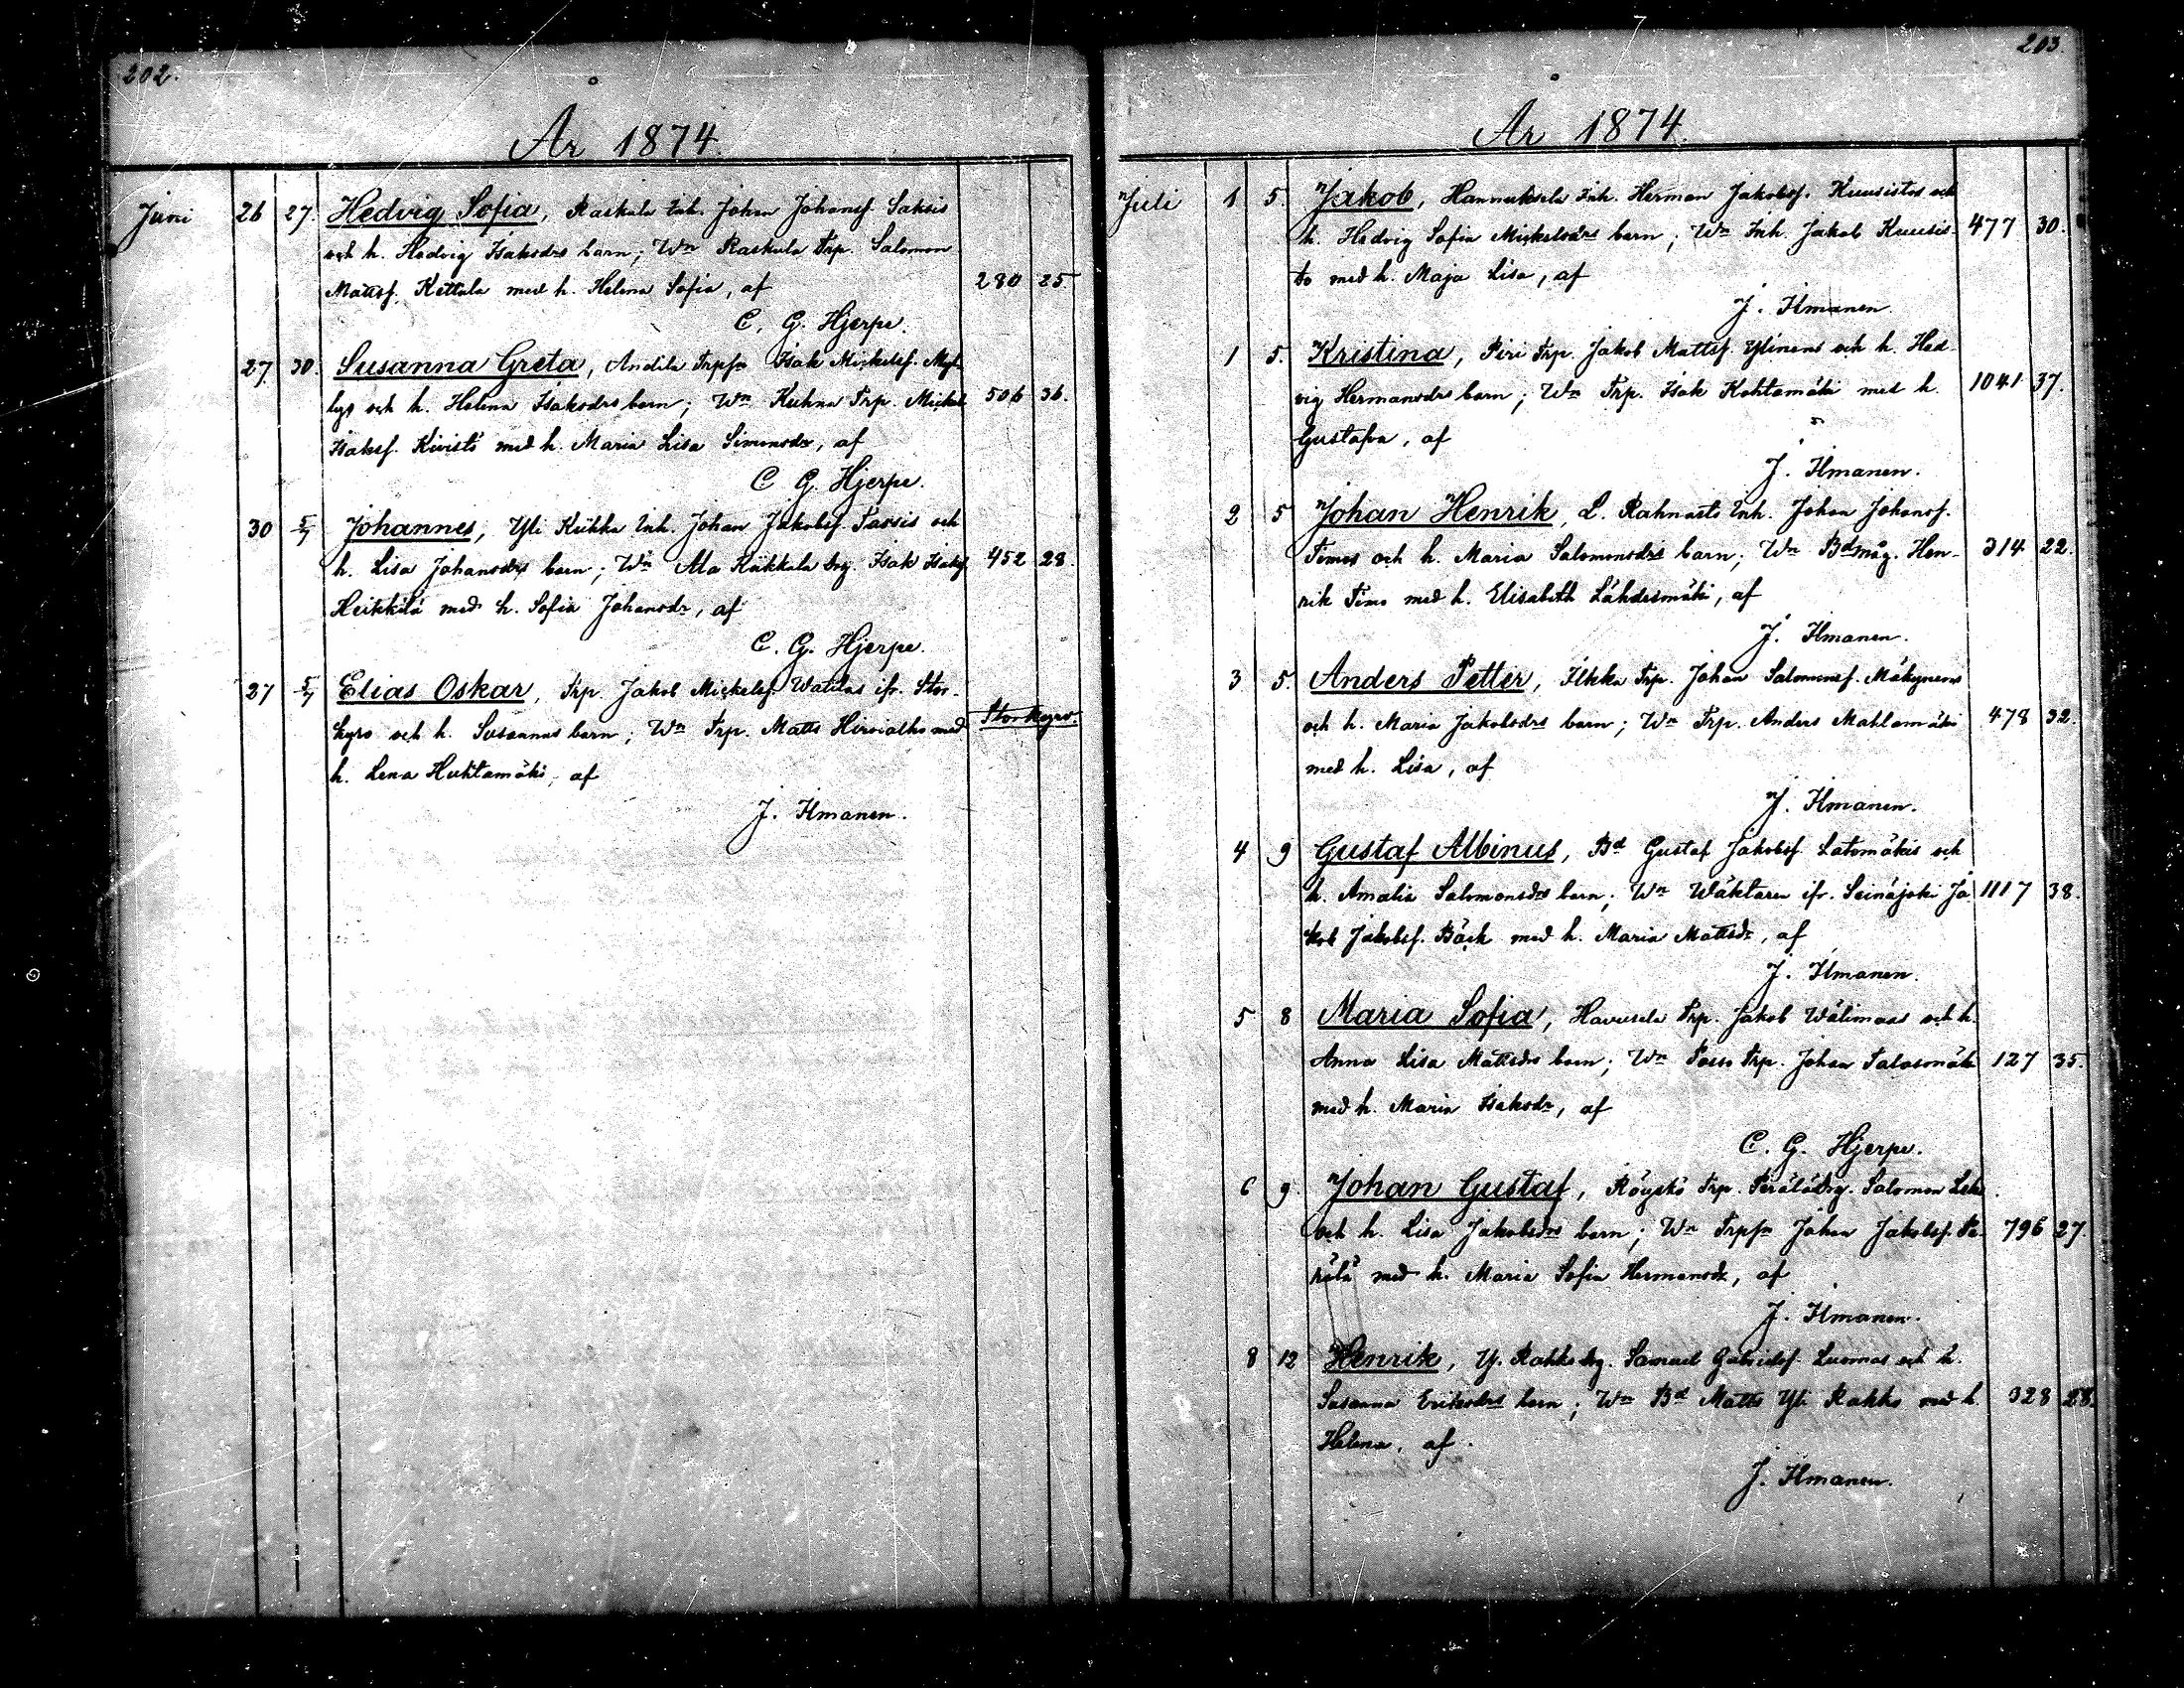 202.
År 1874.
Juni 26 27. Hedvig Sofia, Raskula Inh. Johan Johansf. Saksis
och h. Hedvig Isaksdrs barn; Wn Raskula Trp. Salomon
Mattsf. Kettula med h. Helena Sofia, af 280 25.
C. G. Hjerpe.
27. 30. Susanna Greta, Andila Trpfn Isak Mickelsf. Myl-
lys och h. Helena Isaksdrs barn; Wn Kuhna Trp. Mickel 506 36.
Isaksf. Kivistö med h. Maria Lisa Simonsdr, af
C G. Hjerpe.
30 5/7 Johannes, Yli Kiikka Inh. Johan Jakobsf. Tassis och
h. Lisa Johansdrs barn; Wn Ala Kiikkala drg. Isak Isaksf. 452 28.
Heikkilä med h. Sofia Johansdr, af
C. G. Hjerpe.
27 5/7 Elias Oskar, Trp. Jakob Mickelsf. Watilas ifr. Stor-
kyro och h. Susannas barn; Wn Trp. Matts Hirsiaho med Storkyro.
h. Lena Huhtamäki, af
J. Ilmanen.
203.
År 1874.
Juli 1 5. Jakob, Hannuksela Inh. Herman Jakobsf. Kuusistos och
h. Hedvig Sofia Mickelsdrs barn; Wn Inh. Jakob Kuusis- 477 30.
to med h. Maja Lisa, af
J. Ilmanen.
1 5. Kristina, Piri Trp. Jakob Mattsf. Ylinens och h. Hed-
vig Hermansdrs barn; Wn Trp. Isak Kohtamäki med h. 1041 37.
Gustafva, af
J. Ilmanen.
2 5 Johan Henrik, L. Rahnasto Inh. Johan Johansf.
Timos och h. Maria Salomonsdrs barn; Wn Bdmåg. Hen- 314 22.
rik Timo med h. Elisabeth Lähdesmäki, af
J. Ilmanen.
3 5. Anders Petter, Ilkka Trp. Johan Salomonsf. Mäkynens
och h. Maria Jakobsdrs barn; Wn Trp. Anders Mahlamäki 478 32.
med h. Lisa, af
J. Ilmanen.
4 9 Gustaf Albinus, Bd Gustaf Jakobsf. Latomäkis och
h. Amalia Salomonsdrs barn; Wn Wäktaren ifr. Seinäjoki Ja 1117 38.
kob Jakobsf. Bäck med h. Maria Mattsdr, af
J. Ilmanen.
5 8 Maria Sofia, Havusela Trp. Jakob Wälimaas och h.
Anna Lisa Mattsdrs barn; Wn Passo Trp. Johan Talasmäki 127 35.
med h. Maria Isaksdr, af
C. G. Hjerpe.
6 9. Johan Gustaf, Röyskö Trp. Perälä drg. Salomon
och h. Lisa Jakobsdrs barn; Wn Trpfn Johan Jakobsf. Pe- 796 27.
rälä med h. Maria Sofia Hermansdr, af
J. Ilmanen.
8 12 Henrik, Y. Rahko drg. Samuel Gabrielsf. Luomas och h.
Susanna Eriksdrs barn; Wn Bd Matts Yli Rahko med h. 328 28.
Helena, af
J. Ilmanen.